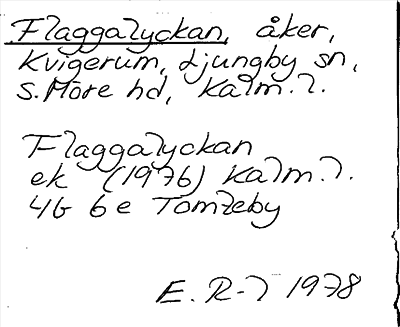 Flaggalyckan, åker,
Kvigerum, Ljungby sn,
S. Möre hd, Kalm. l.
Flaggalyckan
ek (1976) Kalm. l.
4G 6e Tomteby
E. R-l 1978